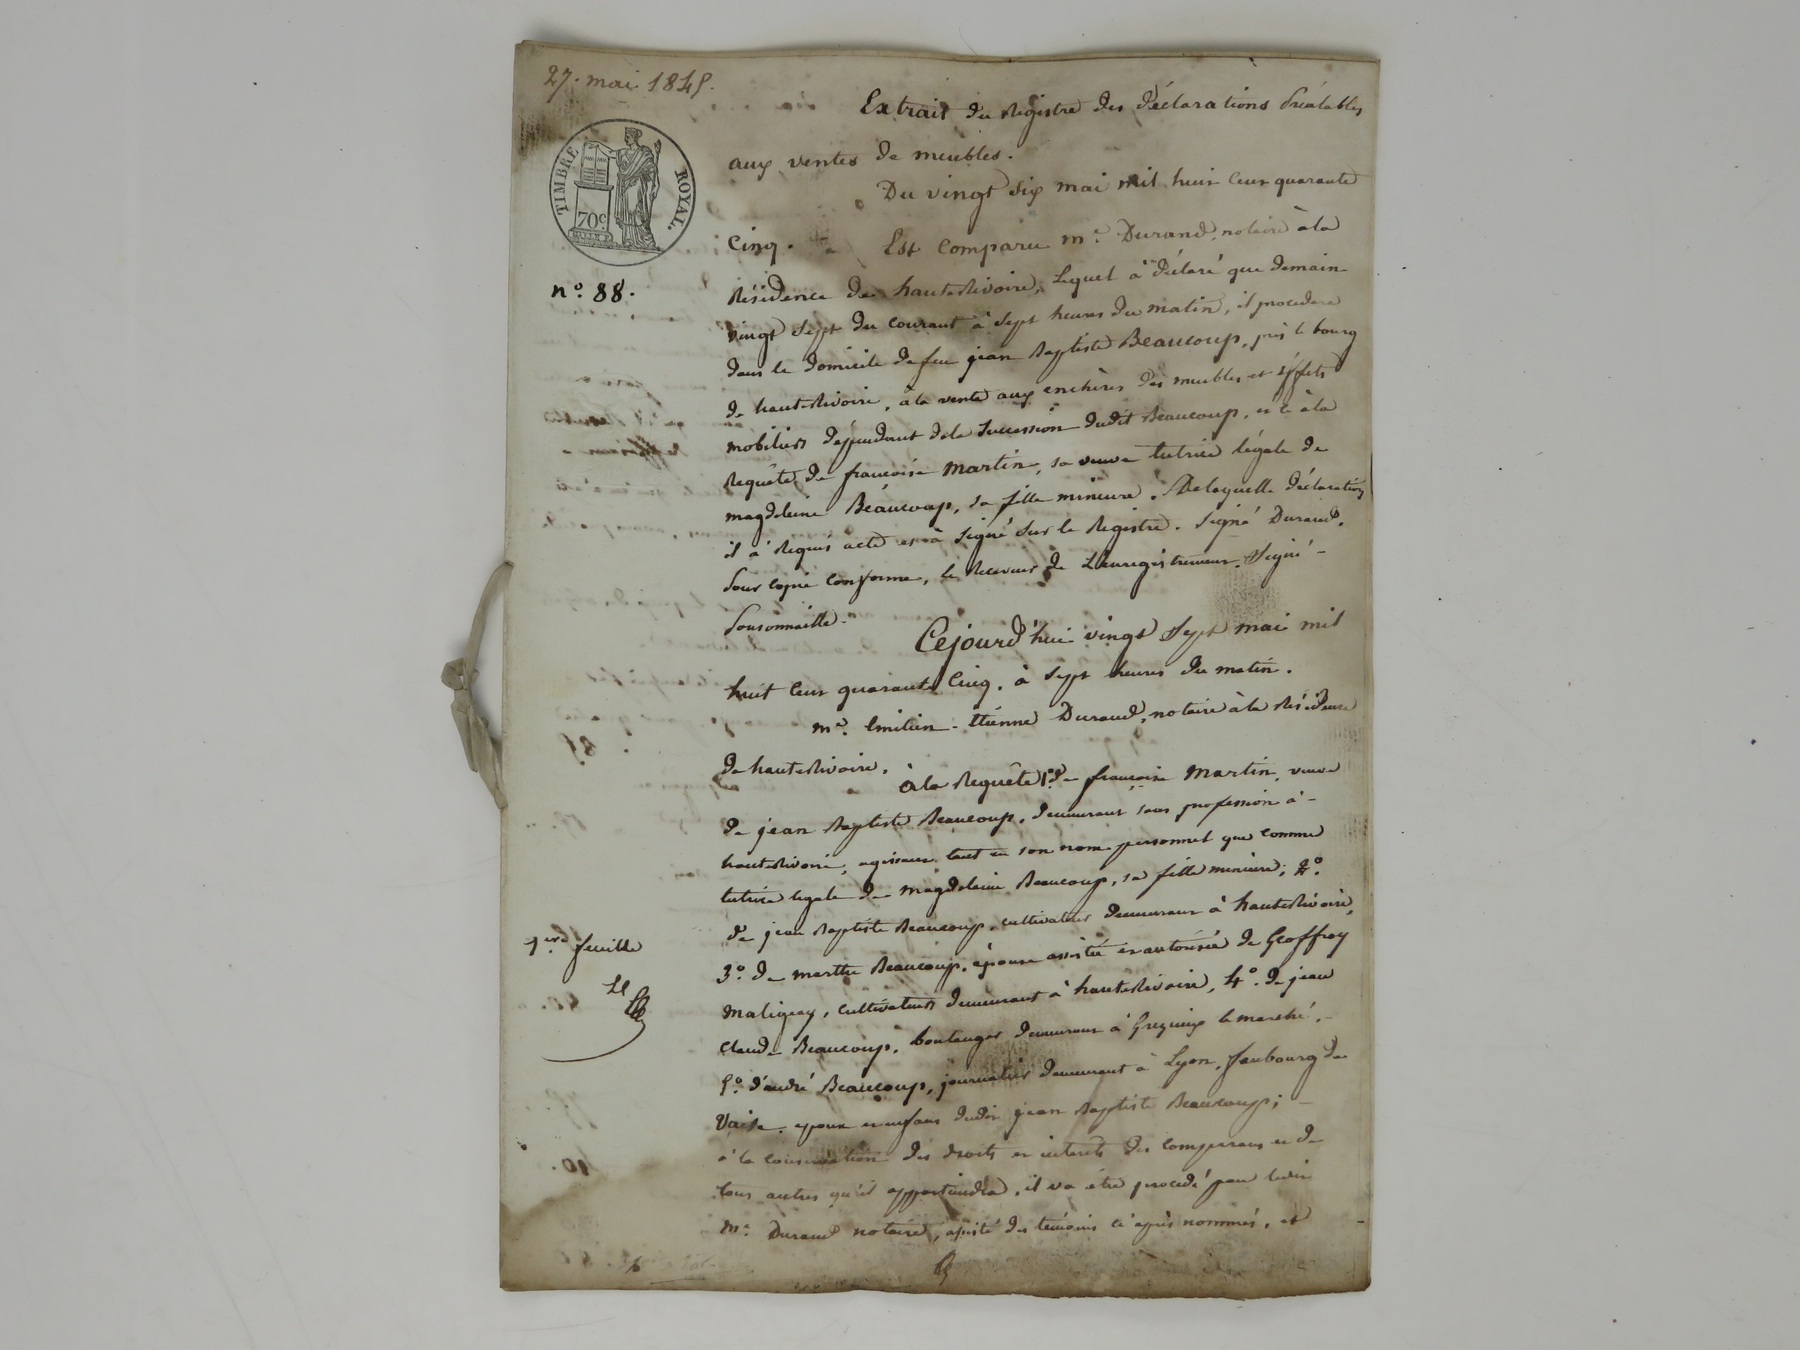 27. mai 1845.
Extrait du Registre des déclarations Préalables
aux ventes de meubles.
TIMBRE ROYAL.
70c
Du vingt six mai mil huit Cent quarante
Cinq. Est Comparu me. Durand, notaire à la
n° 88.
Résidence de hauteRivoire, Lequel a déclaré que demain
vingt Sept du courant à Sept heures du matin, il procedera
dans le domicile de feu jean Baptiste Beaucoup, près le bourg
de hauteRivoire, à la vente aux enchères des meubles et effets
mobiliers dépendant dela Succession dudit Beaucoup, et ce à la
Requête de francoise Martin, sa veuve tutrice légale de
magdeleine Beaucoup, sa fille mineure. Delaquelle déclaration
il a Requis acte et a Signé Sur le Registre. Signé Durand.
Pour copie conforme, le Receveur de L'enregistrement. Signé -
Ponsonnaille.
Cejourd'hui vingt Sept mai mil
huit Cent quarante Cinq, à Sept heures du matin.
Me. Emilien - Etienne Durand, notaire à la Résidence
de hauteRivoire.
à la Requête 1° de francoise Martin, veuve
de jean Baptiste Beaucoup, demeurant sans profession à -
hauteRivoire, agissant tant en son nom personnel que comme
tutrice legale de Magdeleine Beaucoup, sa fille mineure; 2°.
de jean Baptiste Beaucoup, cultivateur demeurant à hauteRivoire,
1ere. feuille
3° de marthe Beaucoup, épouse assistée et autorisée de Geoffray
Maligeay, cultivateurs demeurant à hauteRivoire, 4°. de jean
Claude Beaucoup, boulanger demeurant à Grezieux le marché, -
5° d'andré Beaucoup, journalier demeurant à Lyon, faubourg de
Vaise, epoux et enfans dudit jean Baptiste Beaucoup; -
à la conservation des droits et interets des comparans et de
tous autres qu'il appartiendra, il va être procédé par ledit
Me. Durand notaire, assisté des temoins ci après nommés, et